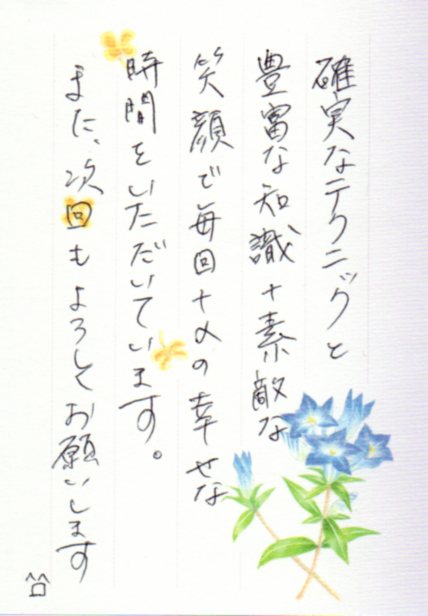 確実なテクニックと
豊富な知識+素敵な
笑顔で毎回+αの幸せな
時間をいただいています。
また、次回もよろしくお願いします